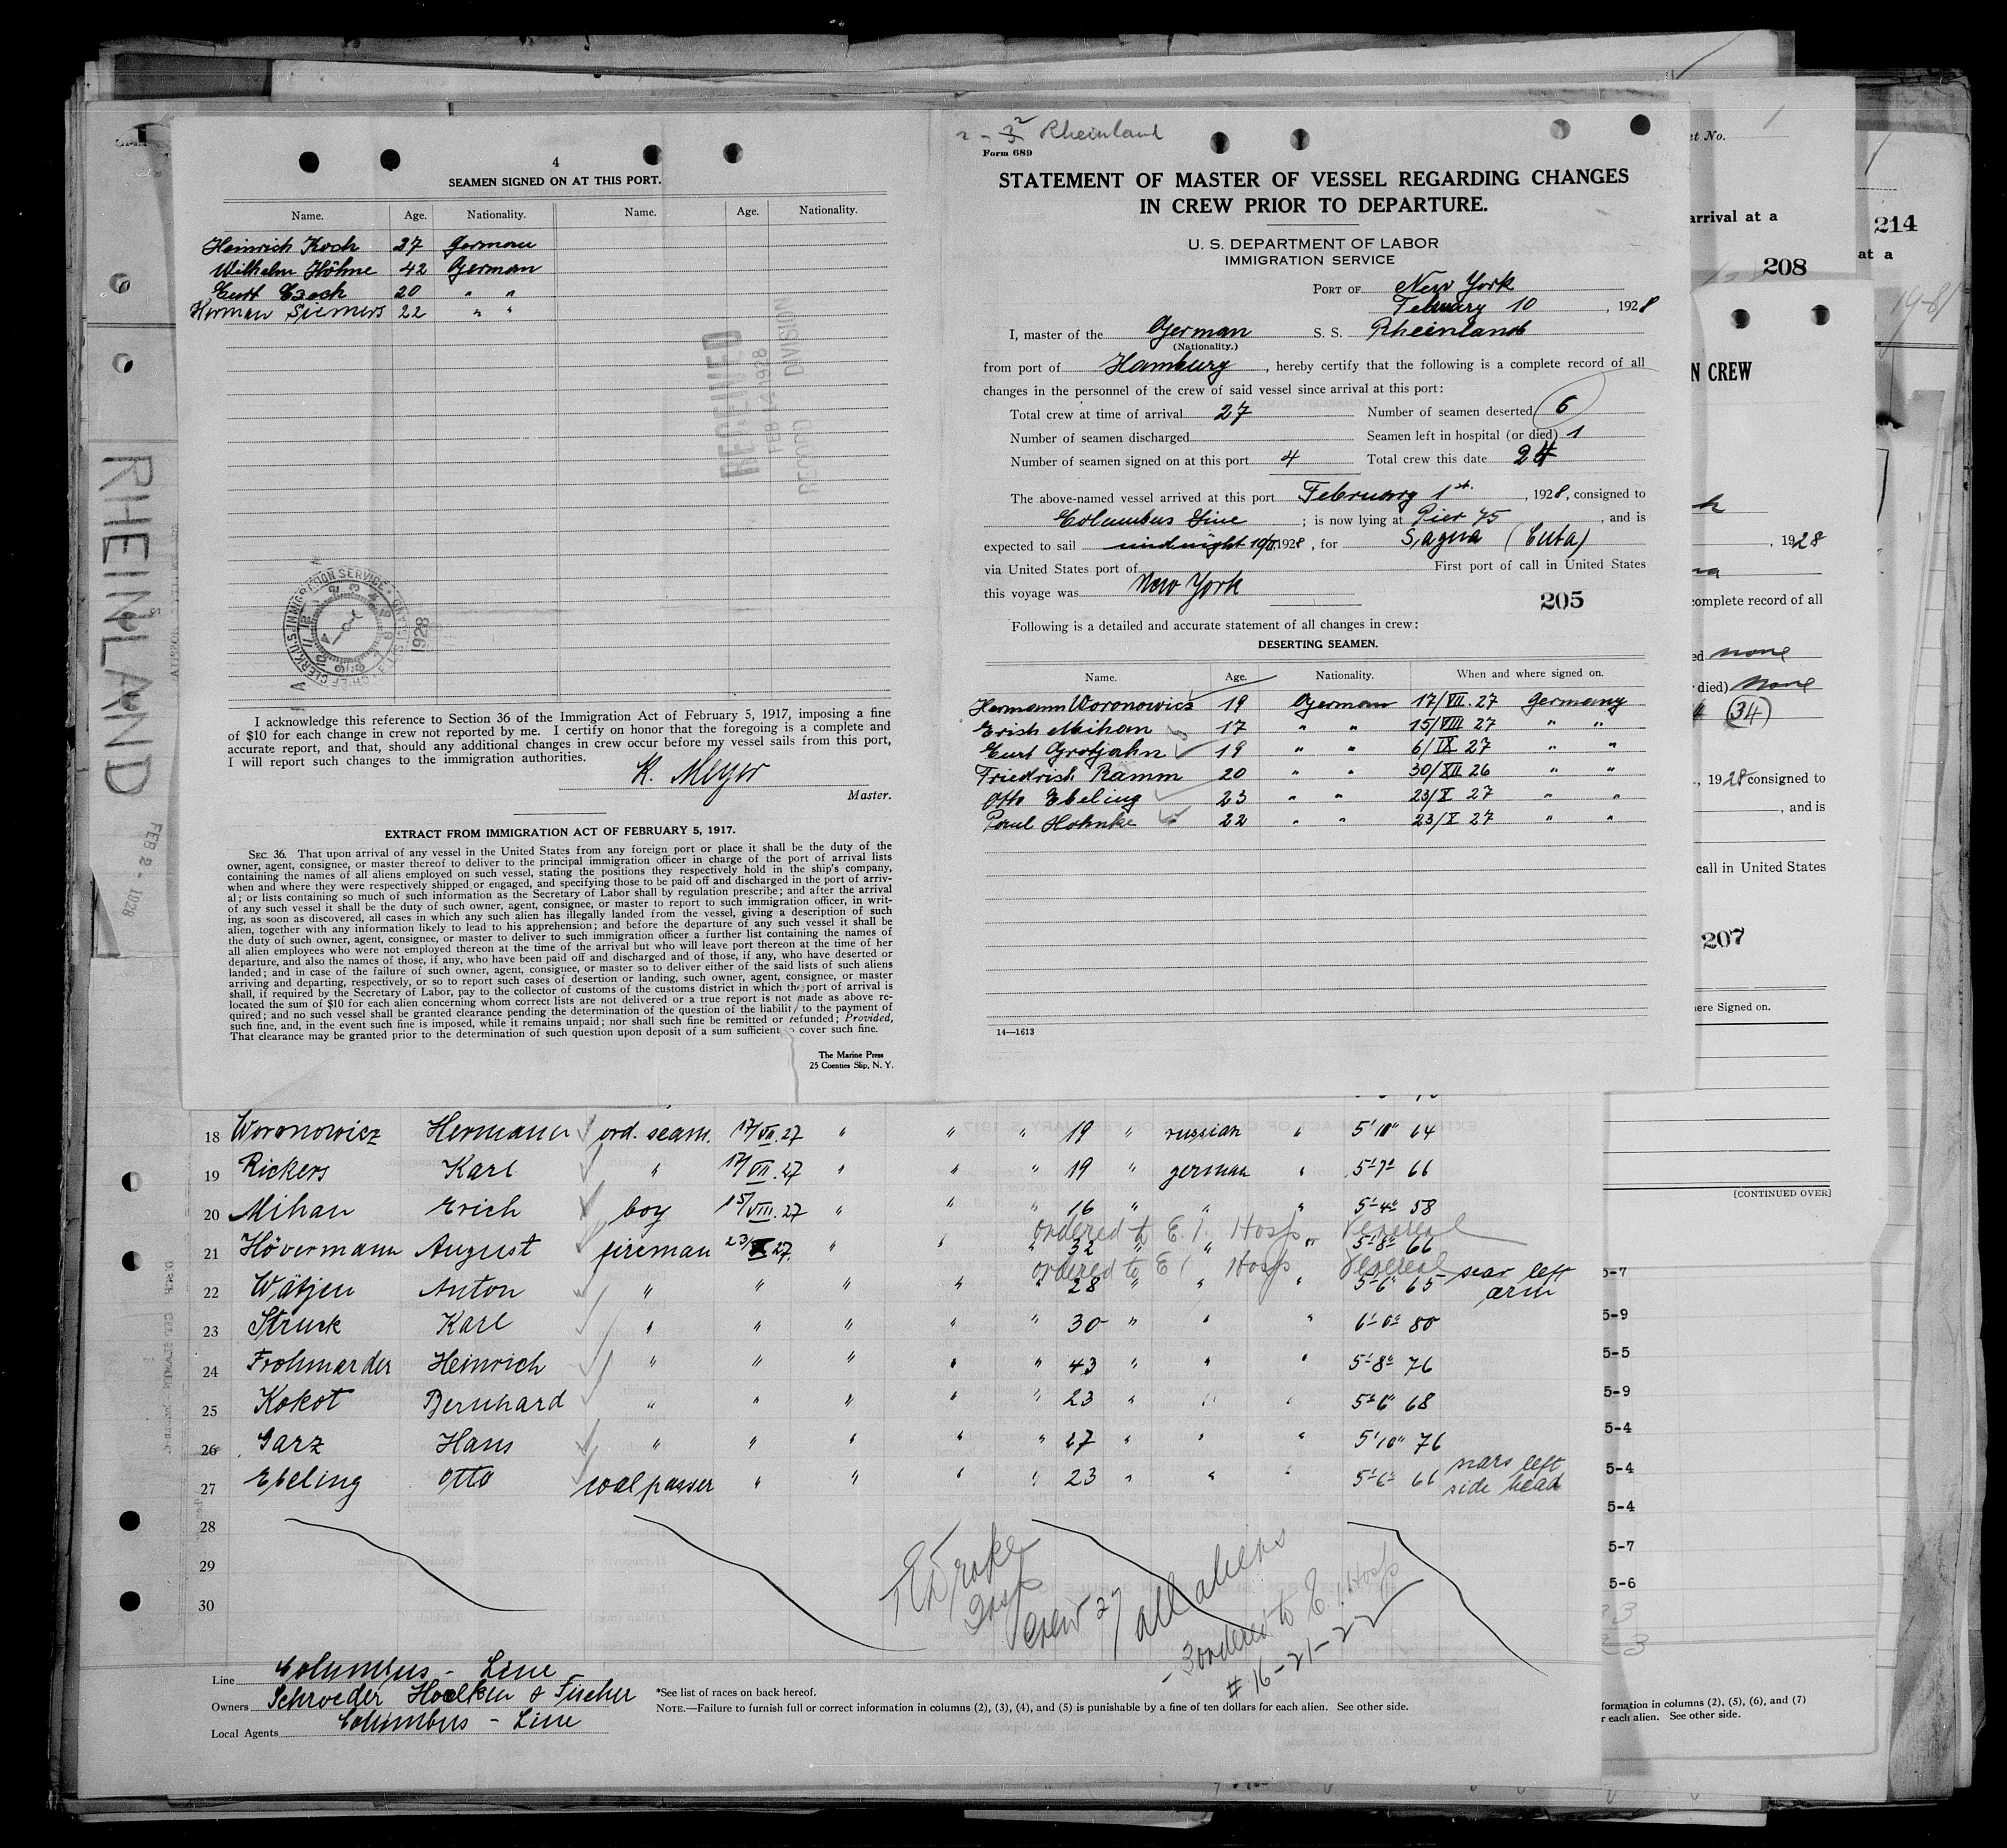 4
SEAMEN SIGNED ON AT THIS PORT.
Name. Age. Nationality. Name. Age. Nationality.
Heinrich Koch 27 German
Wilhelm Höhne 42 German
Curt Czech 20 " "
Herman Siemers 22 " "
RECEIVED
FEB 14 1928
DIVISION
1928
I acknowledge this reference to Section 36 of the Immigration Act of February 5, 1917, imposing a fine
of $10 for each change in crew not reported by me. I certify on honor that the foregoing is a complete and
accurate report, and that, should any additional changes in crew occur before my vessel sails from this port,
I will report such changes to the immigration authorities.
K. Meyer
Master.
EXTRACT FROM IMMIGRATION ACT OF FEBRUARY 5, 1917.
SEC. 36. That upon arrival of any vessel in the United States from any foreign port or place it shall be the duty of the
owner, agent, consignee, or master thereof to deliver to the principal immigration officer in charge of the port of arrival lists
containing the names of all aliens employed on such vessel, stating the positions they respectively hold in the ship's company,
when and where they were respectively shipped or engaged, and specifying those to be paid off and discharged in the port of arriv-
al; or lists containing so much of such information as the Secretary of Labor shall by regulation prescribe; and after the arrival
of any such vessel it shall be the duty of such owner, agent, consignee, or master to report to such immigration officer, in writ-
ing, as soon as discovered, all cases in which any such alien has illegally landed from the vessel, giving a description of such
alien, together with any information likely to lead to his apprehension; and before the departure of any such vessel it shall be
the duty of such owner, agent, consignee, or master to deliver to such immigration officer a further list containing the names of
all alien employees who were not employed thereon at the time of the arrival but who will leave port thereon at the time of her
departure, and also the names of those, if any, who have been paid off and discharged and of those, if any, who have deserted or
landed; and in case of the failure of such owner, agent, consignee, or master so to deliver either of the said lists of such aliens
arriving and departing, respectively, or so to report such cases of desertion or landing, such owner, agent, consignee, or master
shall, if required by the Secretary of Labor, pay to the collector of customs of the customs district in which the port of arrival is
located the sum of $10 for each alien concerning whom correct lists are not delivered or a true report is not made as above re-
quired; and no such vessel shall be granted clearance pending the determination of the question of the liability to the payment of
such fine, and, in the event such fine is imposed, while it remains unpaid; nor shall such fine be remitted or refunded; Provided,
That clearance may be granted prior to the determination of such question upon deposit of a sum sufficient to cover such fine.
The Marine Press
25 Coenties Slip, N. Y.
Rheinland
Form 689
STATEMENT OF MASTER OF VESSEL REGARDING CHANGES
IN CREW PRIOR TO DEPARTURE.
U. S. DEPARTMENT OF LABOR
IMMIGRATION SERVICE
PORT OF New York
Februay 10, 1928
I, master of the German S. S. Rheinland
(Nationality.)
from port of Hamburg, hereby certify that the following is a complete record of all
changes in the personnel of the crew of said vessel since arrival at this port:
Total crew at time of arrival 27 Number of seamen deserted 6
Number of seamen discharged Seamen left in hospital (or died) 1
Number of seamen signed on at this port 4 Total crew this date 24
The above-named vessel arrived at this port February 1st, 1928, consigned to
Columbus Line; is now lying at Pier 75, and is
expected to sail midnight 10/II 1928, for Sagua (Cuba)
via United States port of First port of call in United States
this voyage was New York
205
Following is a detailed and accurate statement of all changes in crew:
DESERTING SEAMEN.
Name. Age. Nationality. When and where signed on.
Hermann Woronowicz 19 German 17/VII. 27 Germany
Erich Mihan 17 " " 15/VIII 27 " "
Curt Grotjahn 19 " " 6/IX 27 " "
Friedrich Ramm 20 " " 30/XII 26 " "
Otto Ebeling 23 " " 23/X 27 " "
Paul Hohnke 22 " " 23/X 27 " "
14—1613
RHEINLAND
FEB 2 - 1928
18 Woronowicz Hermann ord. seam. 17/VII. 27 " " " 19 " russian " 5'10" 64
19 Rickers Karl " 17/VII. 27 " " " 19 " german " 5'7" 66
20 Mihan Erich boy 15/VIII. 27 " " " 16 " " " 5'4" 58
ordered to E. I. Hosp Venereal
21 Hövermann August fireman 23/X 27. " " " 32 " " " 5'8" 66
ordered to E I Hosp Venereal
22 Wätjen Anton " " " " " 28 " " " 5'6" 65 scar left arm
23 Struck Karl " " " " " 30 " " " 6'0" 80
24 Frohmarder Heinrich " " " " " 43 " " " 5'8" 76
25 Kokot Bernhard " " " " " 23 " " " 5'6" 68
26 Garz Hans " " " " " 27 " " " 5'10" 76
27 Ebeling Otto coalpasser " " " " 23 " " " 5'6" 66 scars left side head
28
29
30
Insp
Crew 27 all aliens
- 3 ordered to E. I Hosp
# 16-21-22
Line Columbus - Line
Owners Schroeder Hoelken & Fischer
Local Agents Columbus - Line
*See list of races on back hereof.
NOTE.—Failure to furnish full or correct information in columns (2), (3), (4), and (5) is punishable by a fine of ten dollars for each alien. See other side.
et No. 1
arrival at a
208
214
at a
N CREW
, 1928
complete record of all
ed none
died) none
34
, 1928 consigned to
, and is
call in United States
207
here Signed on.
[CONTINUED OVER]
5-7
5-9
5-5
5-9
5-4
5-4
5-4
5-7
5-6
formation in columns (2), (5), (6), and (7)
r each alien. See other side.